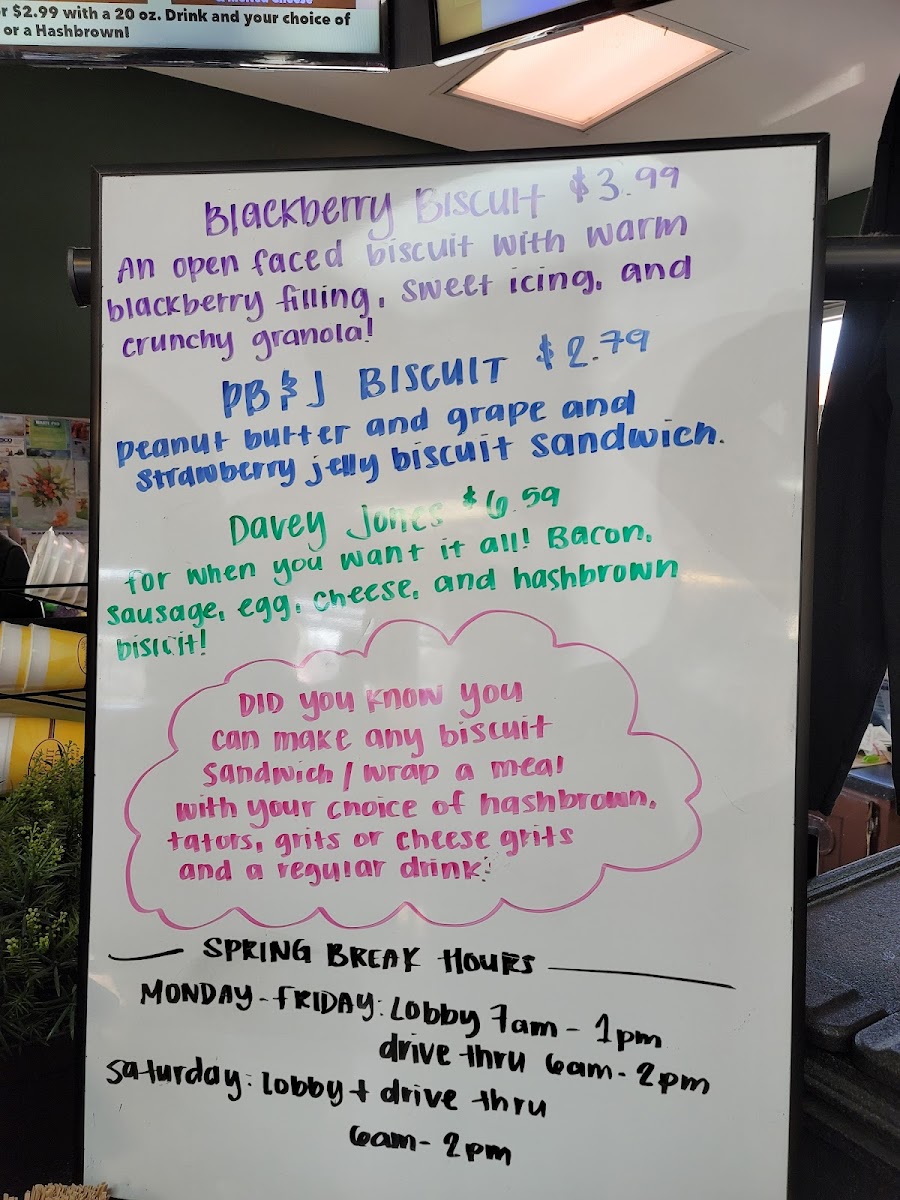 r $2.99 with a 20 oz. Drink and your choice of
or a Hashbrown!
Blackberry Biscuit $3.99
An open faced biscuit with warm
blackberry filling, sweet icing, and
crunchy granola!
PB & J BISCUIT $2.79
peanut butter and grape and
strawberry jelly biscuit sandwich.
Davey Jones $6.59
for when you want it all! Bacon,
sausage, egg, cheese, and hashbrown
biscuit!
DID you know you
can make any biscuit
sandwich / wrap a meal
with your choice of hashbrown,
tators, grits or cheese grits
and a regular drink!
SPRING BREAK HOURS
MONDAY - FRIDAY: Lobby 7am - 1pm
drive thru 6am - 2pm
Saturday: Lobby + drive thru
6am - 2pm